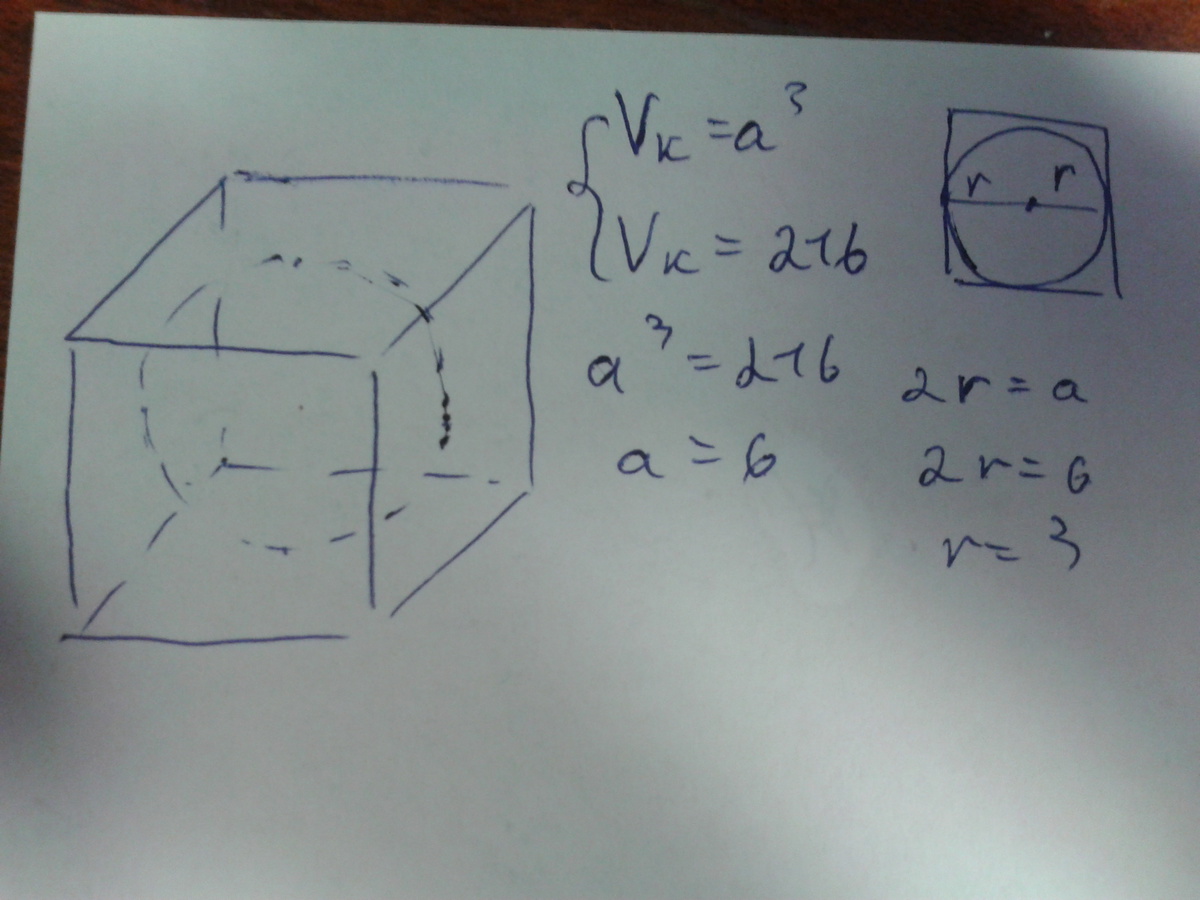 Vк = a³
Vк = 216
a³ = 216
a = 6
r r
2r = a
2r = 6
r = 3